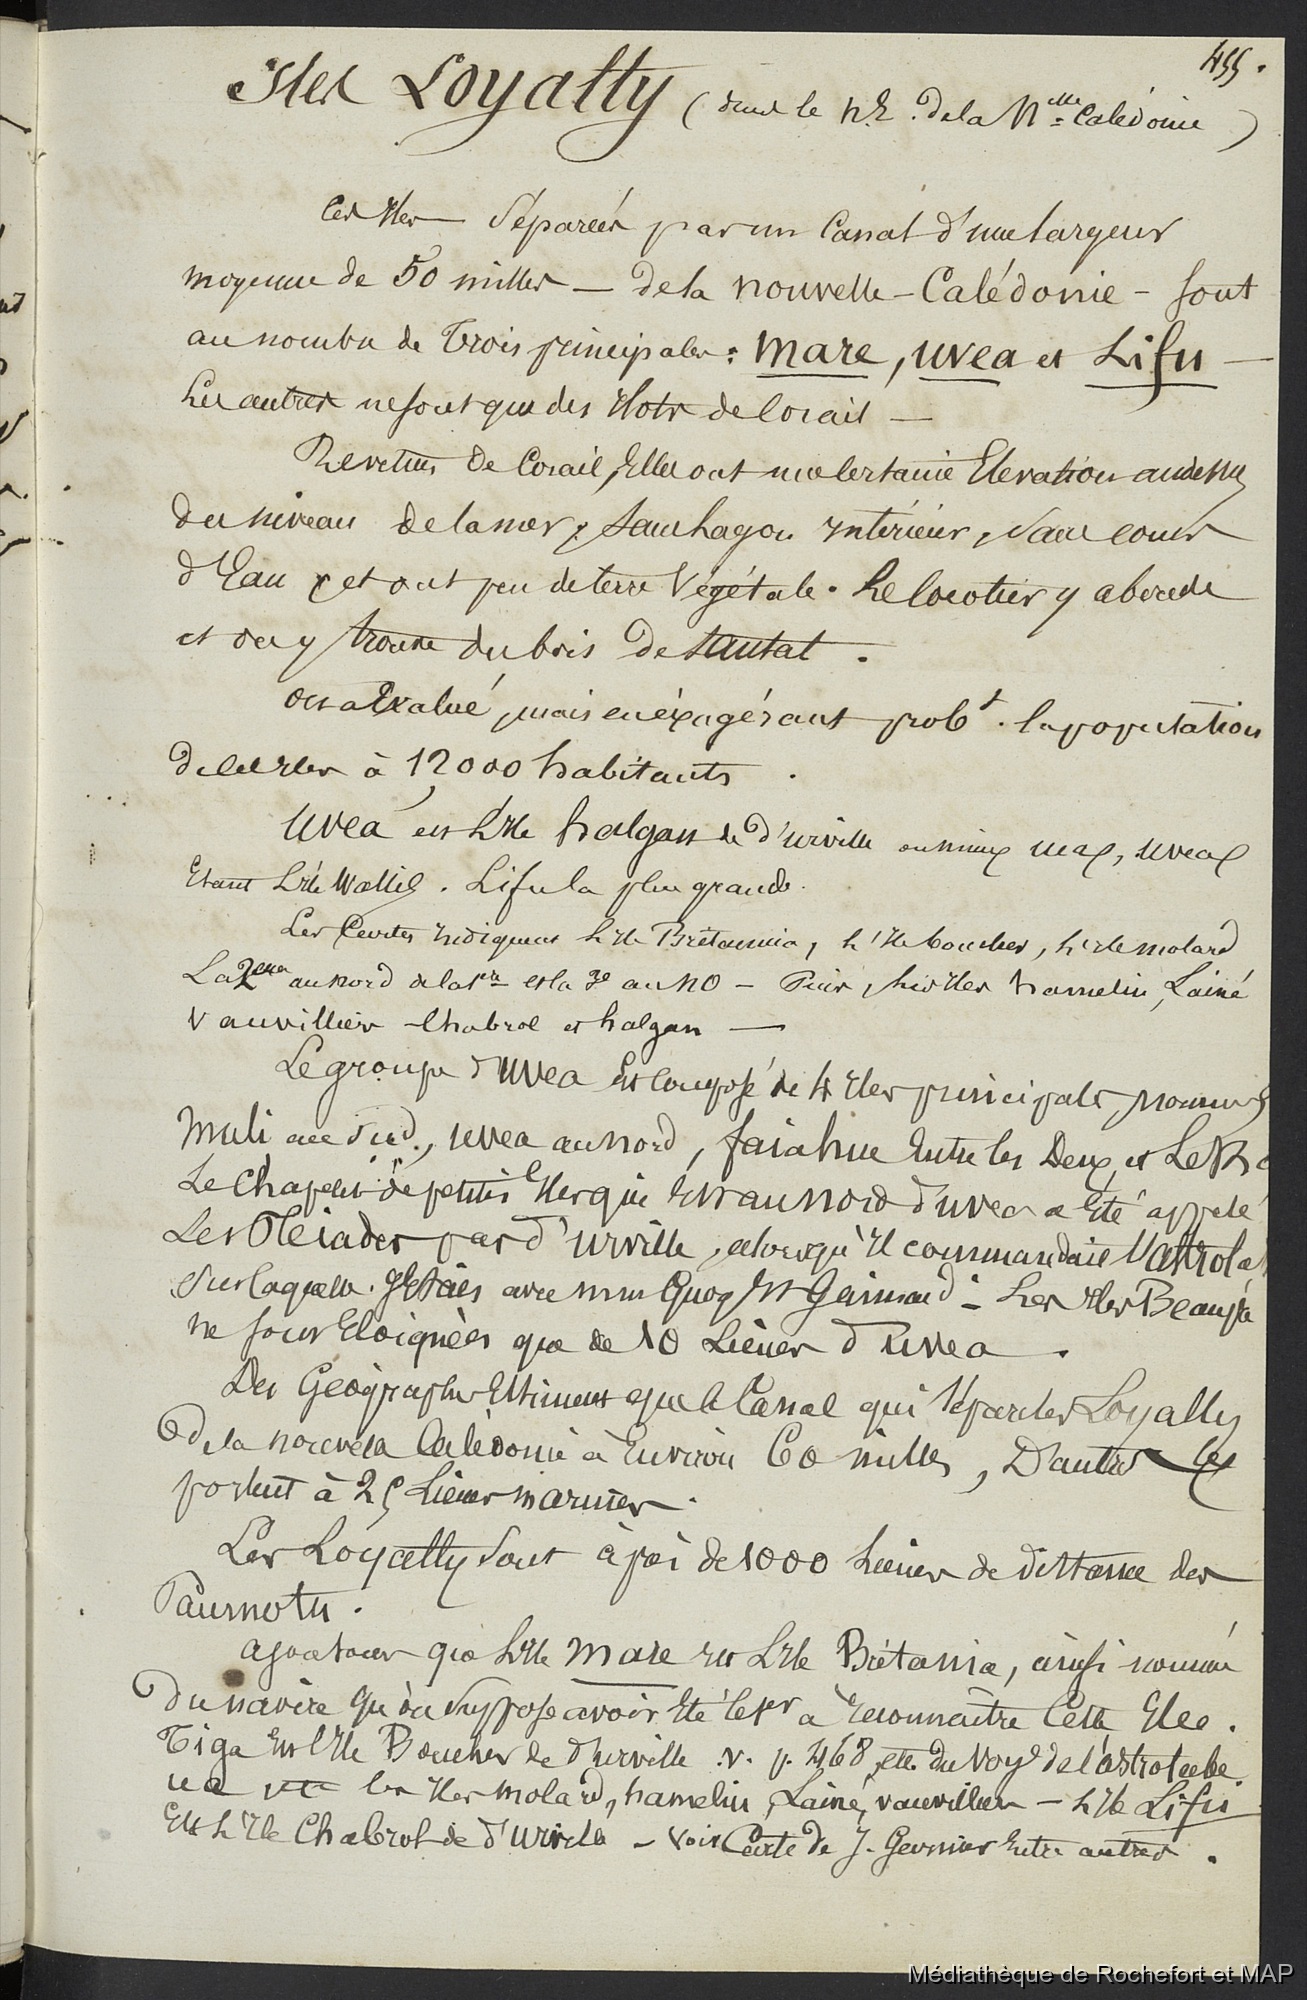 455.
Isles Loyalty (dans le N.E. de la Nlle Calédonie)
Ces Iles — Séparées par un Canal d'une largeur
moyenne de 50 milles — de la nouvelle-Calédonie - sont
au nombre de Trois principales : Mare, Uvea et Lifu —
Les autres ne sont que des Ilots de Corail —
Revetues de Corail, Elles ont une certaine Elevation audessus
du niveau de la mer, sans lagon intérieur, sans cours
d'Eau, et ont peu de terre Végétale. Le Cocotier y abonde
et on y trouve du bois de santal.
On a Evalué, mais en éxagérant probt. la population
de ces Iles à 12,000 habitants.
Uvea est l'Ile halgan de d'urville ou mieux uea, uvea
Etant l'ile Wallis. Lifu la plus grande.
Les Cartes indiquent l'ile Britannia, l'Ile boucher, l'ile molard
La 2eme au nord de la 1re et la 3e au NO — Puis, les Iles hamelin, Lainé
Vauvillier - Chabrol et halgan —
Le groupe d'Uvea Est Composé de 4 Iles principales, nommées
Muli au Sud, uvea au nord, faiahue Entre les Deux, et
Le Chapelet de petites Iles qui Est au nord d'uvea a Eté appelé
Les Pleiades par d'Urville, alorsqu'Il commandait l'astrolabe
sur laquelle j'Etais avec mm Quoy Et Gaimard - Les Iles Beaupré
ne sont Eloignées que de 10 Lieues d'Uvea.
Des Géographes Estiment que le Canal qui sépare les Loyalty
de la nouvelle Calédonie à Environ 60 milles, D'autres le
portent à 25 Lieues marines.
Les Loyalty sont à près de 1000 Lieues de distance des
Paumotu.
ajoutons que l'Ile Mare est l'Ile Britania, ainsi nommée
du navire qu'on suppose avoir Eté le 1er à reconnaitre Cette Ile.
Tiga Est l'Ile Boucher de d'urville. v. p. 468, etc. du Voye de l'astrolabe.
les Iles molard, hamelin, Lainé, vauvillier — l'Ile Lifu
Est l'Ile Chabrol de d'Urville - Voir Carte de J. Garnier Entre autres.
Médiathèque de Rochefort et MAP